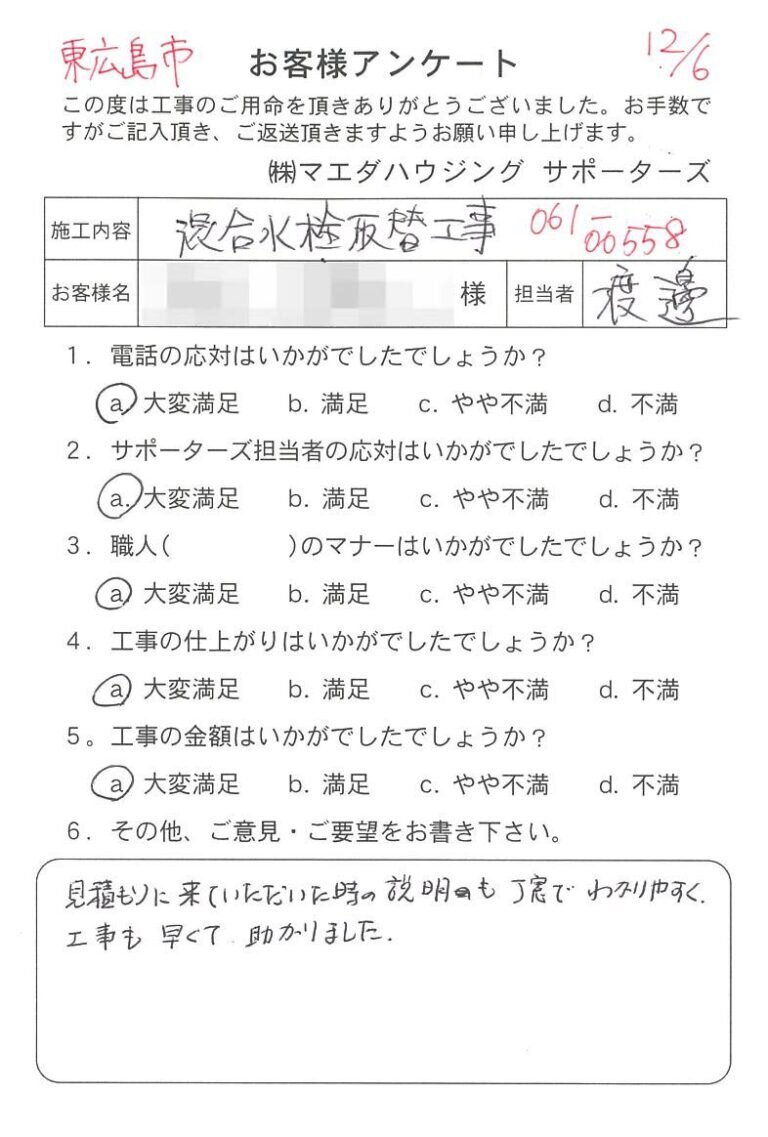 東広島市 お客様アンケート 12/6
この度は工事のご用命を頂きありがとうございました。お手数で
すがご記入頂き、ご返送頂きますようお願い申し上げます。
㈱マエダハウジング サポーターズ
施工内容 混合水栓取替工事 061-00558
お客様名 様 担当者 渡邊
1. 電話の応対はいかがでしたでしょうか?
a 大変満足 b. 満足 c. やや不満 d. 不満
2. サポーターズ担当者の応対はいかがでしたでしょうか?
a. 大変満足 b. 満足 c. やや不満 d. 不満
3. 職人( )のマナーはいかがでしたでしょうか?
a 大変満足 b. 満足 c. やや不満 d. 不満
4. 工事の仕上がりはいかがでしたでしょうか?
a 大変満足 b. 満足 c. やや不満 d. 不満
5。工事の金額はいかがでしたでしょうか?
a 大変満足 b. 満足 c. やや不満 d. 不満
6. その他、ご意見・ご要望をお書き下さい。
見積もりに来ていただいた時の説明も丁寧でわかりやすく、
工事も早くて助かりました.